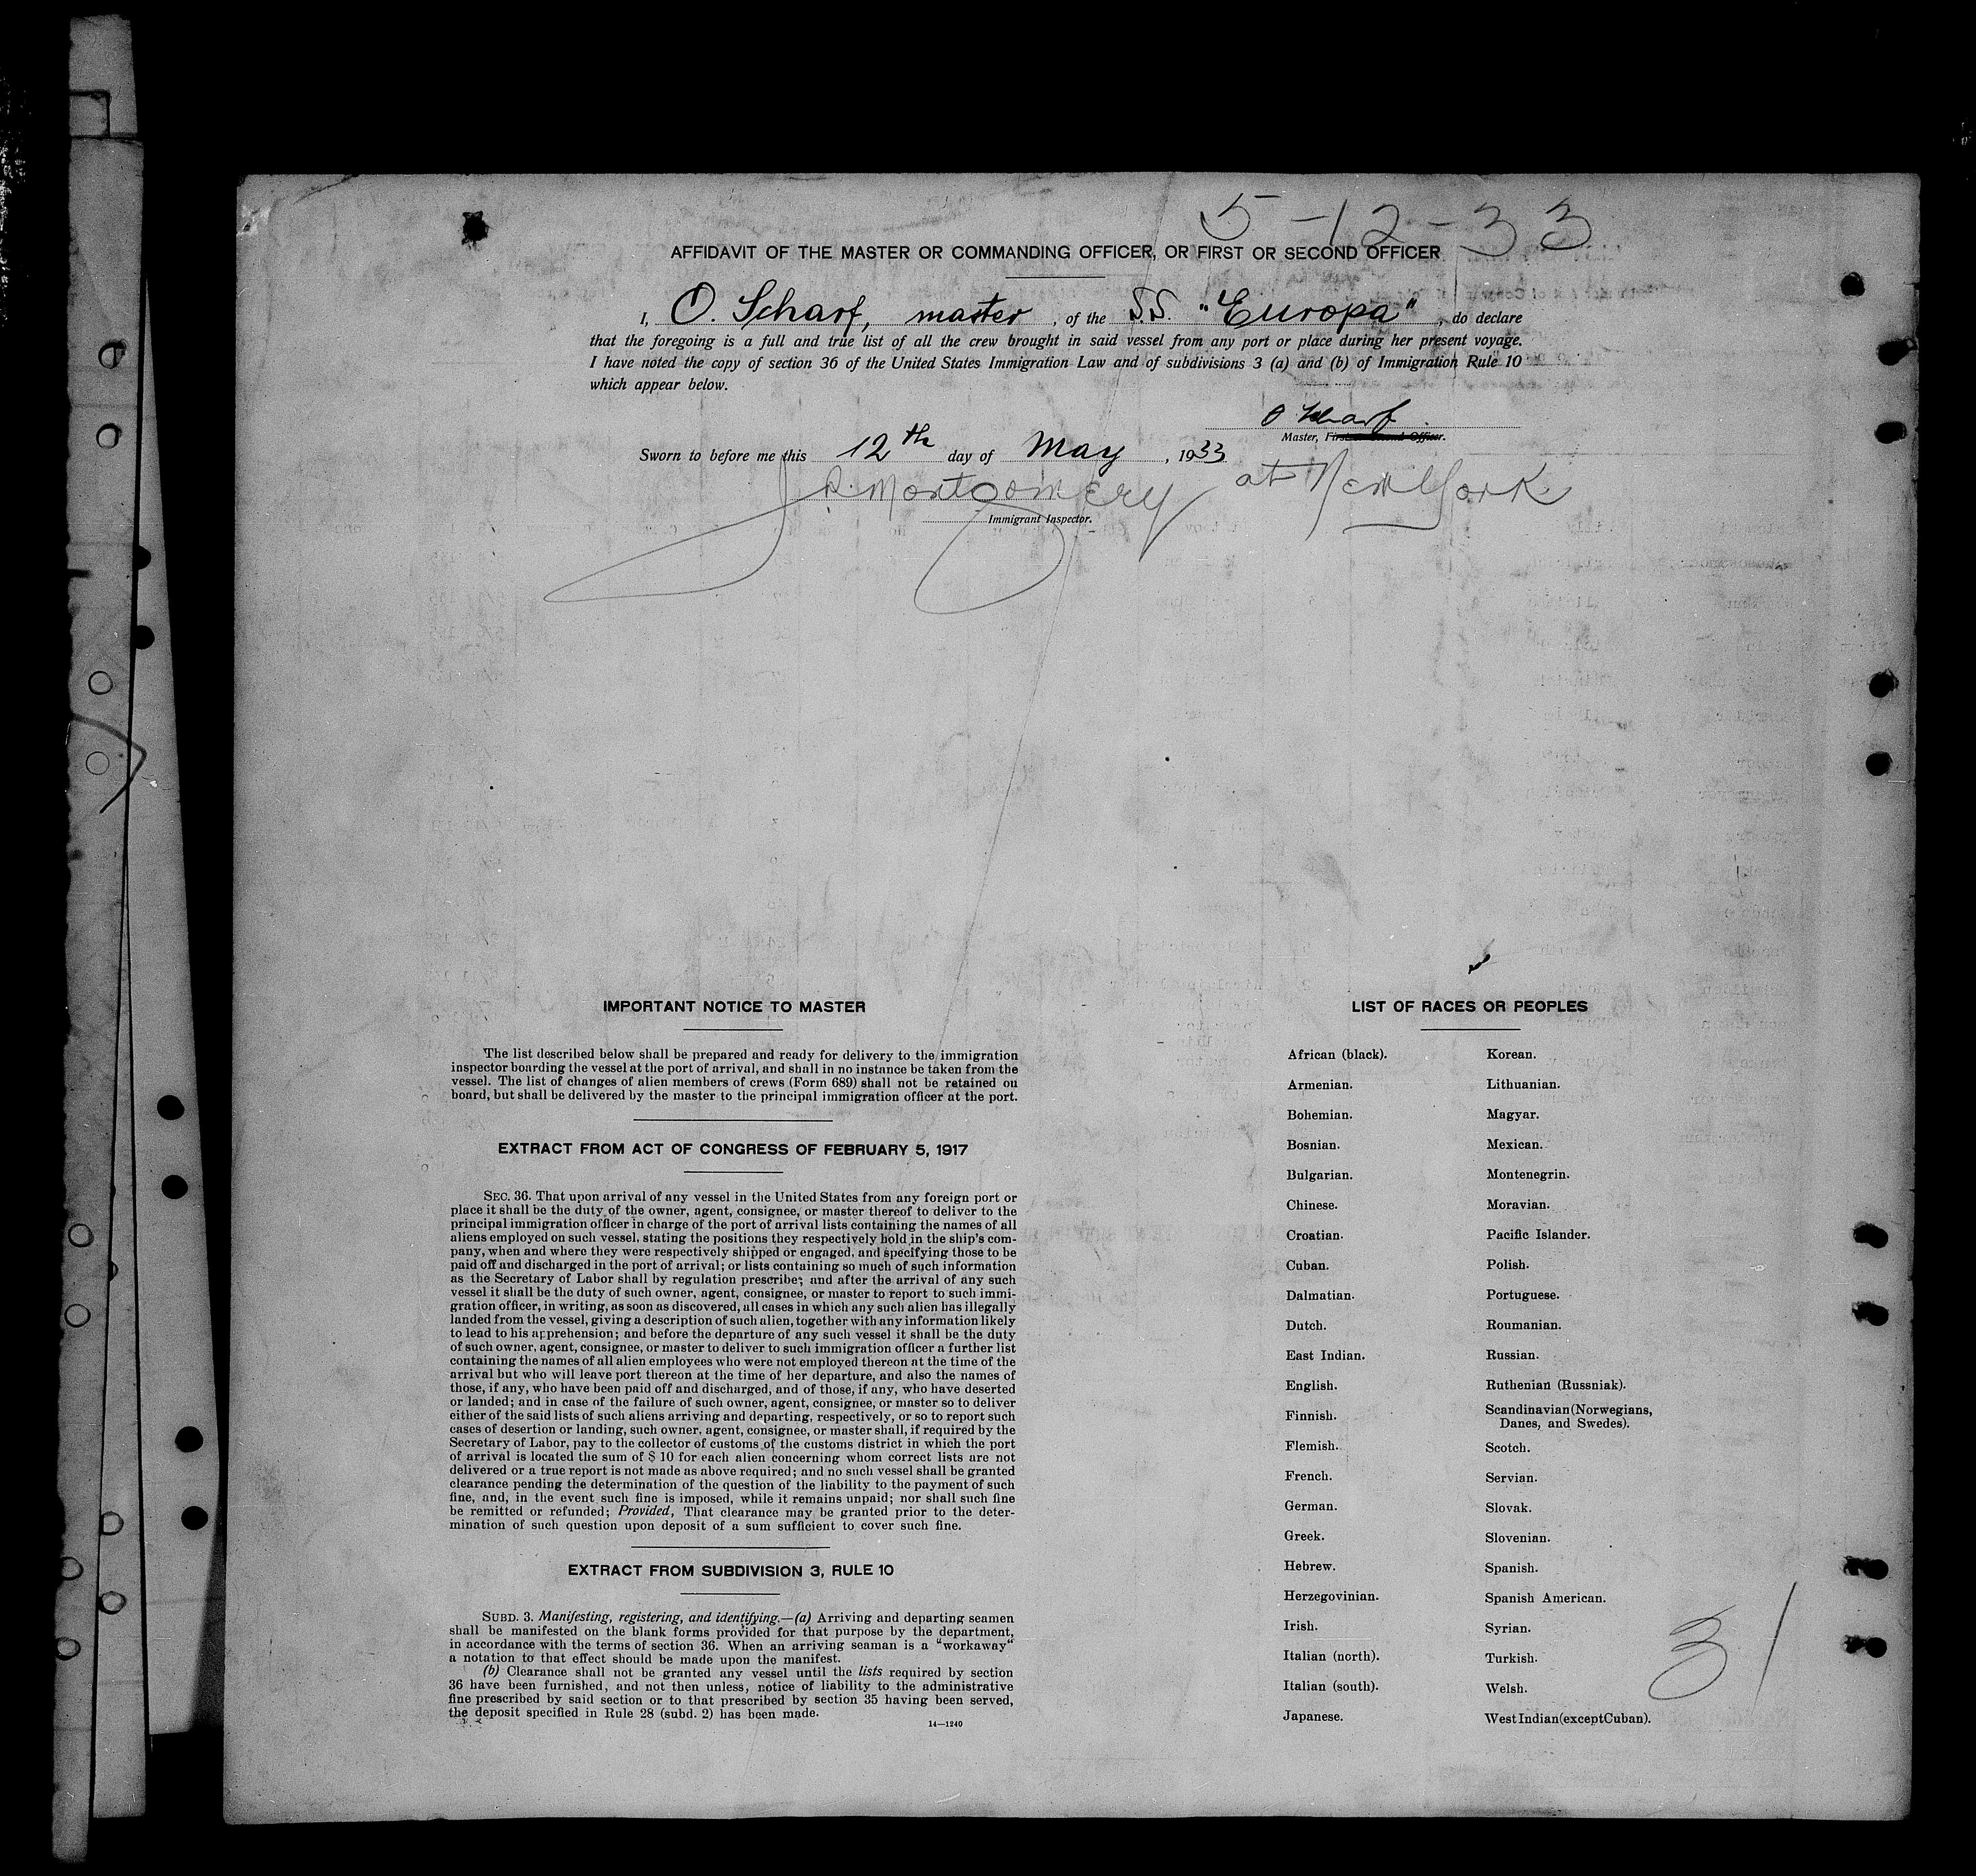 5-12-33
AFFIDAVIT OF THE MASTER OR COMMANDING OFFICER, OR FIRST OR SECOND OFFICER
I, O. Scharf, master, of the S.S. "Europa", do declare
that the foregoing is a full and true list of all the crew brought in said vessel from any port or place during her present voyage.
I have noted the copy of section 36 of the United States Immigration Law and of subdivisions 3 (a) and (b) of Immigration Rule 10
which appear below.
O Scharf
Master, First or Second Officer.
Sworn to before me this 12th day of May, 1933
J. R. Montgomery at New York
Immigrant Inspector.
IMPORTANT NOTICE TO MASTER
The list described below shall be prepared and ready for delivery to the immigration
inspector boarding the vessel at the port of arrival, and shall in no instance be taken from the
vessel. The list of changes of alien members of crews (Form 689) shall not be retained on
board, but shall be delivered by the master to the principal immigration officer at the port.
EXTRACT FROM ACT OF CONGRESS OF FEBRUARY 5, 1917
SEC. 36. That upon arrival of any vessel in the United States from any foreign port or
place it shall be the duty of the owner, agent, consignee, or master thereof to deliver to the
principal immigration officer in charge of the port of arrival lists containing the names of all
aliens employed on such vessel, stating the positions they respectively hold in the ship's com-
pany, when and where they were respectively shipped or engaged, and specifying those to be
paid off and discharged in the port of arrival; or lists containing so much of such information
as the Secretary of Labor shall by regulation prescribe; and after the arrival of any such
vessel it shall be the duty of such owner, agent, consignee, or master to report to such immi-
gration officer, in writing, as soon as discovered, all cases in which any such alien has illegally
landed from the vessel, giving a description of such alien, together with any information likely
to lead to his apprehension; and before the departure of any such vessel it shall be the duty
of such owner, agent, consignee, or master to deliver to such immigration officer a further list
containing the names of all alien employees who were not employed thereon at the time of the
arrival but who will leave port thereon at the time of her departure, and also the names of
those, if any, who have been paid off and discharged, and of those, if any, who have deserted
or landed; and in case of the failure of such owner, agent, consignee, or master so to deliver
either of the said lists of such aliens arriving and departing, respectively, or so to report such
cases of desertion or landing, such owner, agent, consignee, or master shall, if required by the
Secretary of Labor, pay to the collector of customs of the customs district in which the port
of arrival is located the sum of $ 10 for each alien concerning whom correct lists are not
delivered or a true report is not made as above required; and no such vessel shall be granted
clearance pending the determination of the question of the liability to the payment of such
fine, and, in the event such fine is imposed, while it remains unpaid; nor shall such fine
be remitted or refunded; Provided, That clearance may be granted prior to the deter-
mination of such question upon deposit of a sum sufficient to cover such fine.
EXTRACT FROM SUBDIVISION 3, RULE 10
SUBD. 3. Manifesting, registering, and identifying.—(a) Arriving and departing seamen
shall be manifested on the blank forms provided for that purpose by the department,
in accordance with the terms of section 36. When an arriving seaman is a "workaway"
a notation to that effect should be made upon the manifest.
(b) Clearance shall not be granted any vessel until the lists required by section
36 have been furnished, and not then unless, notice of liability to the administrative
fine prescribed by said section or to that prescribed by section 35 having been served,
the deposit specified in Rule 28 (subd. 2) has been made.
14—1240
LIST OF RACES OR PEOPLES
African (black).
Armenian.
Bohemian.
Bosnian.
Bulgarian.
Chinese.
Croatian.
Cuban.
Dalmatian.
Dutch.
East Indian.
English.
Finnish.
Flemish.
French.
German.
Greek.
Hebrew.
Herzegovinian.
Irish.
Italian (north).
Italian (south).
Japanese.
Korean.
Lithuanian.
Magyar.
Mexican.
Montenegrin.
Moravian.
Pacific Islander.
Polish.
Portuguese.
Roumanian.
Russian.
Ruthenian (Russniak).
Scandinavian (Norwegians,
Danes, and Swedes).
Scotch.
Servian.
Slovak.
Slovenian.
Spanish.
Spanish American.
Syrian.
Turkish.
Welsh.
West Indian (except Cuban).
31